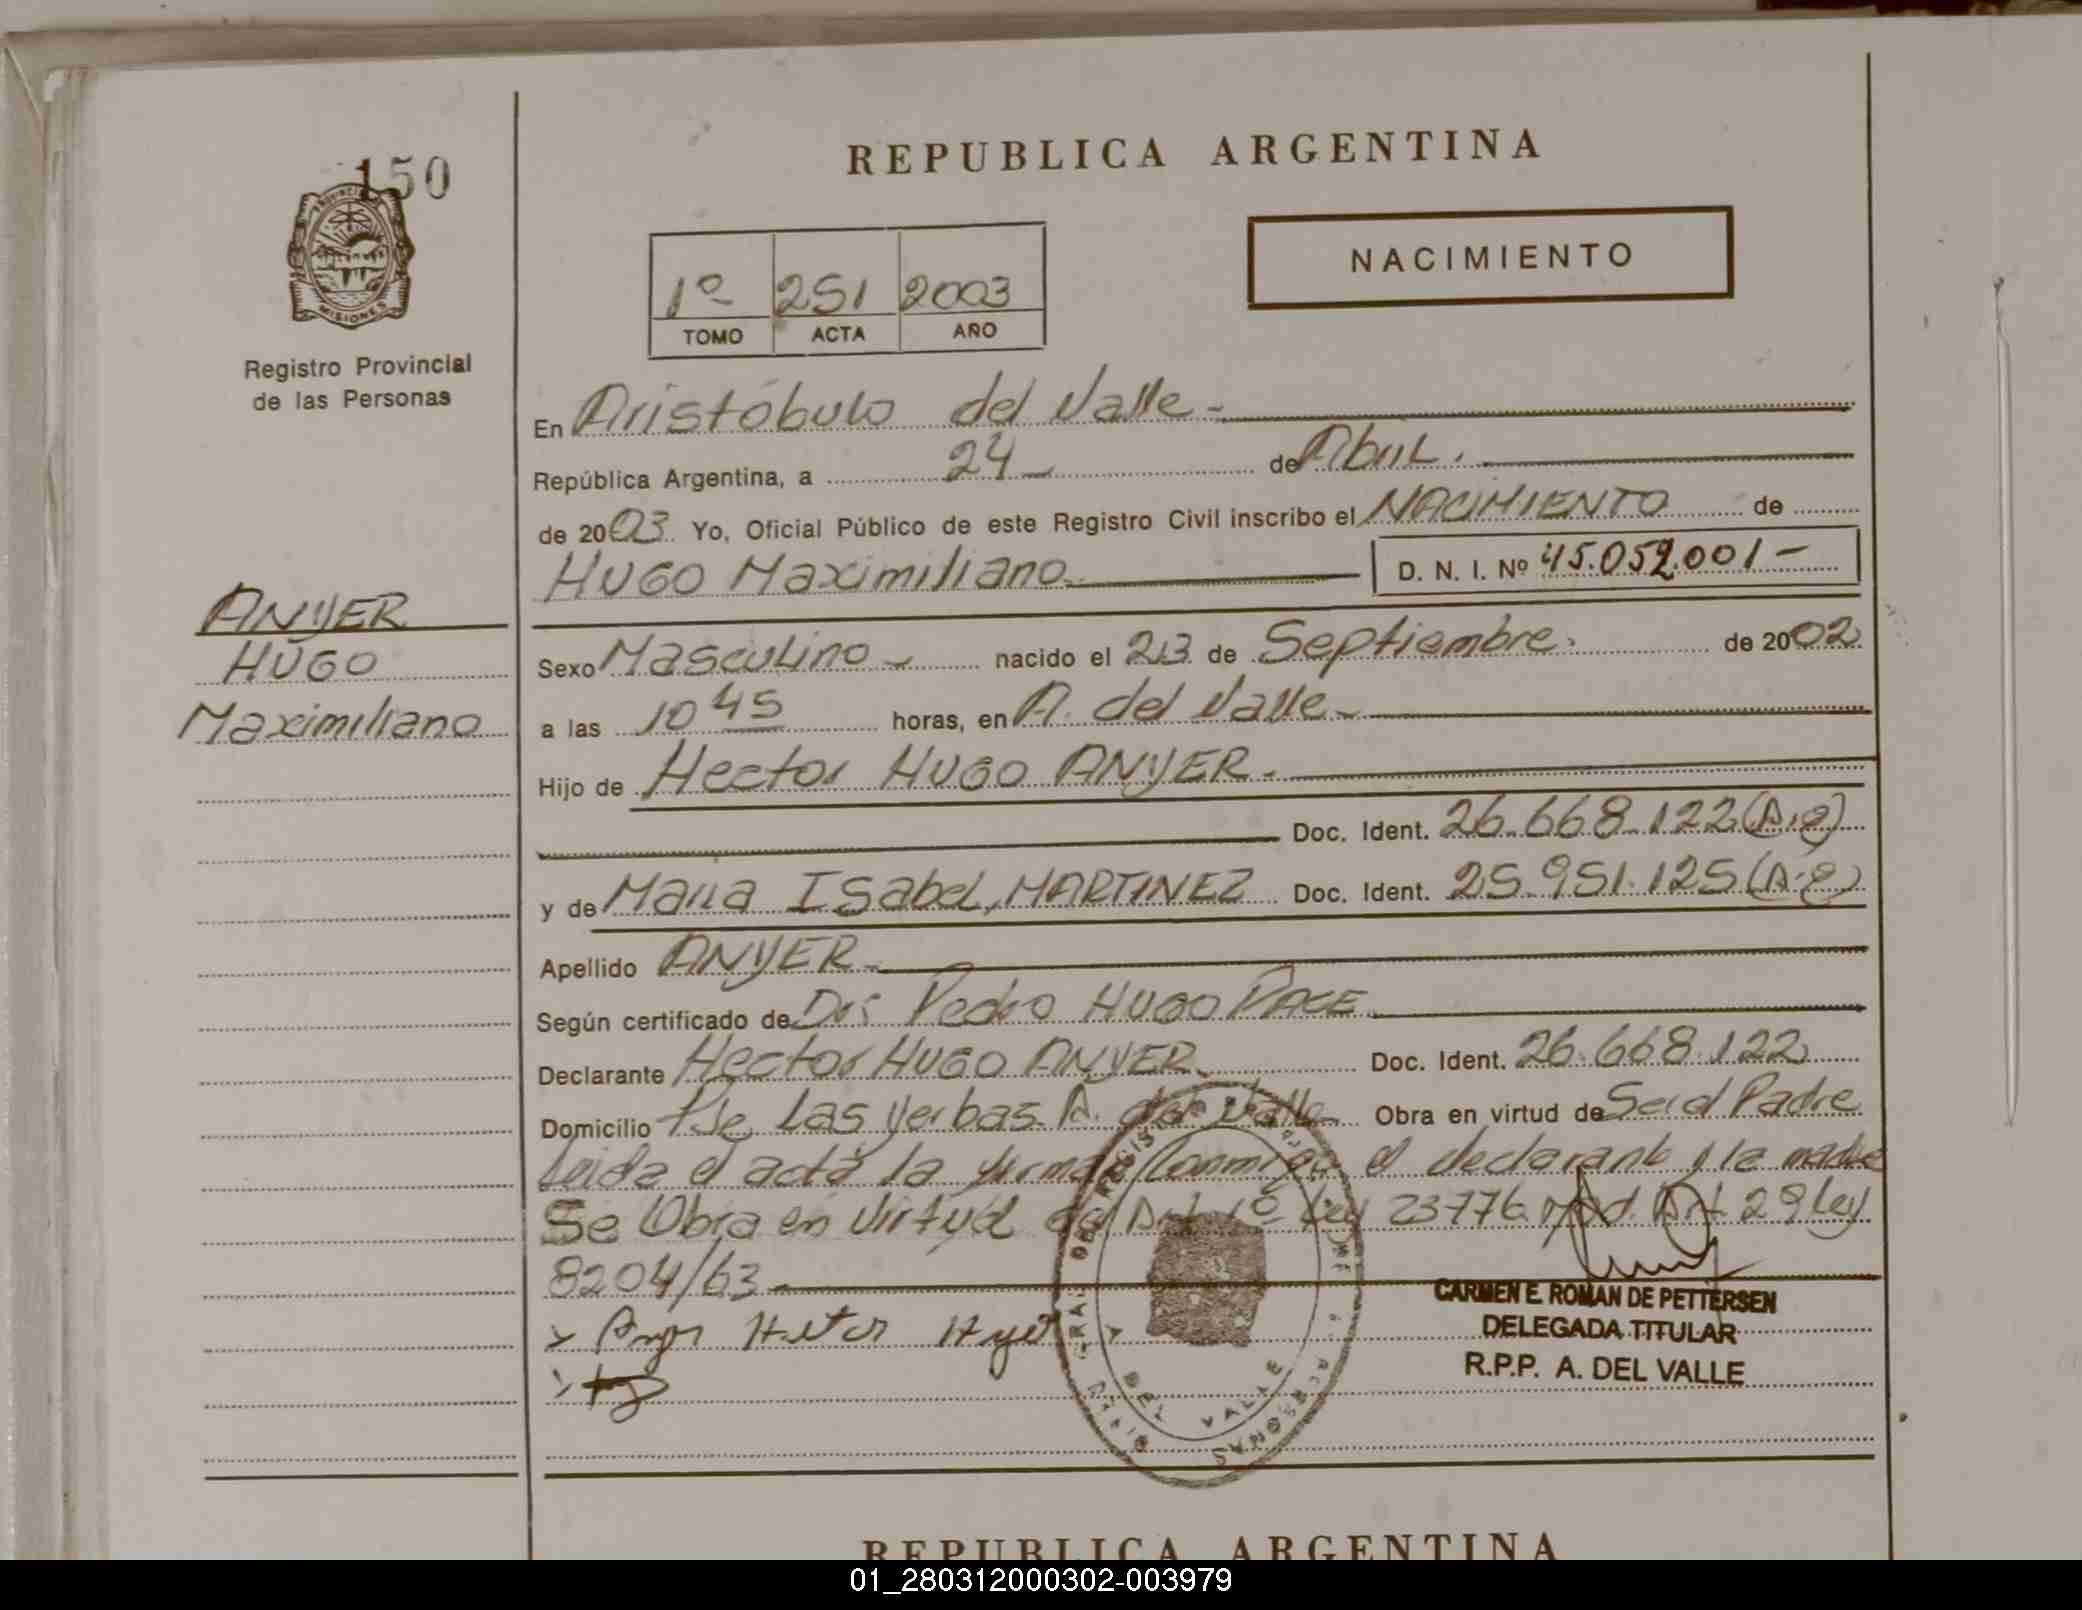 REPUBLICA ARGENTINA
150
PROVINCIA
MISIONES
Registro Provincial
de las Personas
NACIMIENTO
1º 251 2003
TOMO ACTA AÑO
En Aristóbulo del Valle -
República Argentina, a 24 de Abril.
de 2003 Yo, Oficial Público de este Registro Civil inscribo el NACIMIENTO de
HUGO Maximiliano D. N. I. Nº 45.052.001 -
ANYER
HUGO
Maximiliano
Sexo Masculino - nacido el 23 de Septiembre. de 2002
a las 10 45 horas, en A. del Valle -
Hijo de Hector HUGO ANYER -
Doc. Ident. 26.668.122 (A.e)
y de Maria ISabel, MARTINEZ Doc. Ident. 25.951.125 (A.e)
Apellido ANYER -
Según certificado de Dr: Pedro HUGO PACE
Declarante Hector HUGO ANYER Doc. Ident. 26.668.122
Domicilio Pje Las Yerbas. A. del Valle Obra en virtud de Ser el Padre
Leida el acta la firman conmigo el declarante y la madre
Se Obra en Virtud del Art 1º Ley 23776 Mod. Art 29 Ley
8204/63 -
CARMEN E. ROMAN DE PETTERSEN
DELEGADA TITULAR
R.P.P. A. DEL VALLE
A. DEL VALLE
REPUBLICA ARGENTINA
01_280312000302-003979